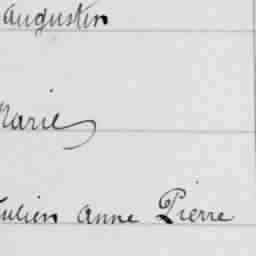 Augustin
Marie
Julien Anne Pierre